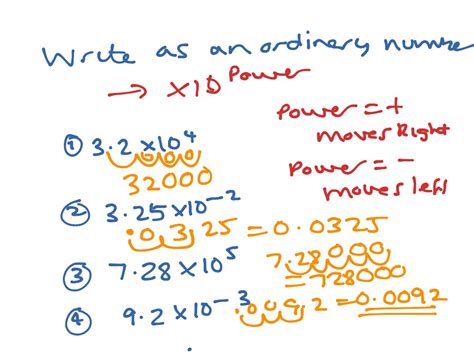 Write as an ordinary numbe
→ ×10^Power
Power = +
moves Right
Power = -
moves left
① 3.2×10⁴
32000
② 3.25×10⁻²
.0325 = 0.0325
③ 7.28×10⁵
7.28000
= 728000
④ 9.2×10⁻³
.009.2 = 0.0092